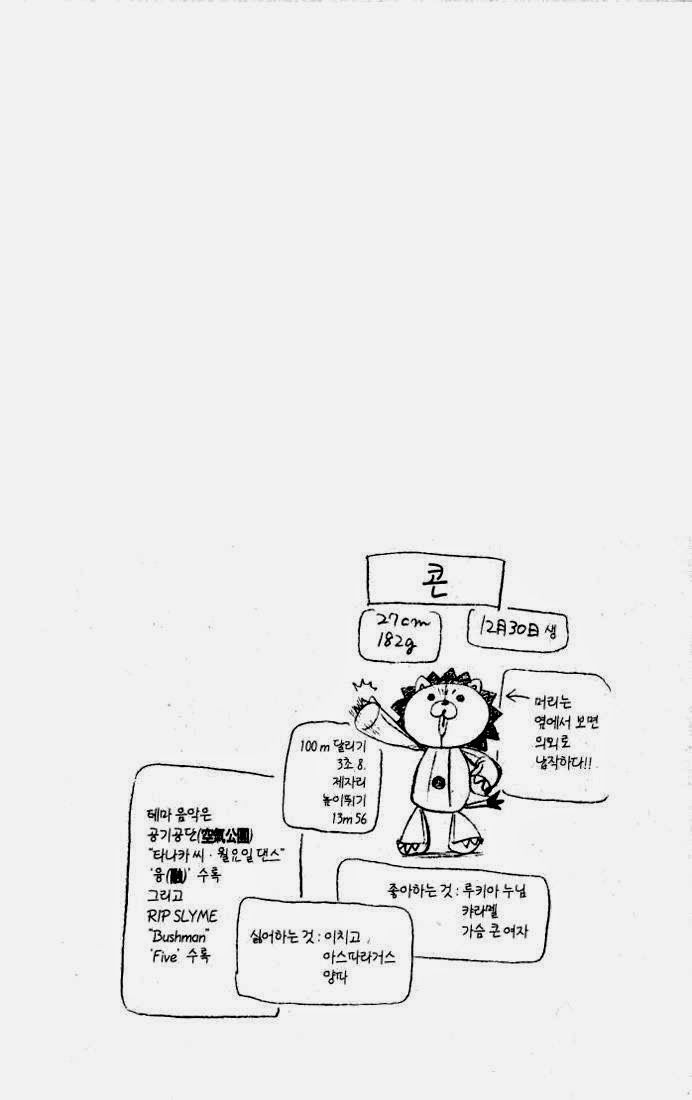 콘
27cm
182g
12月30日 생
← 머리는
옆에서 보면
의외로
납작하다!!
100 m 달리기
3초 8.
제자리
높이뛰기
13m 56
테마 음악은
공기공단(空氣公團)
"타나카 씨·월요일 댄스"
'융(融)' 수록
그리고
RIP SLYME
"Bushman"
'Five' 수록
좋아하는 것 : 루키아 누님
캬라멜
가슴 큰 여자
싫어하는 것 : 이치고
아스파라거스
양파